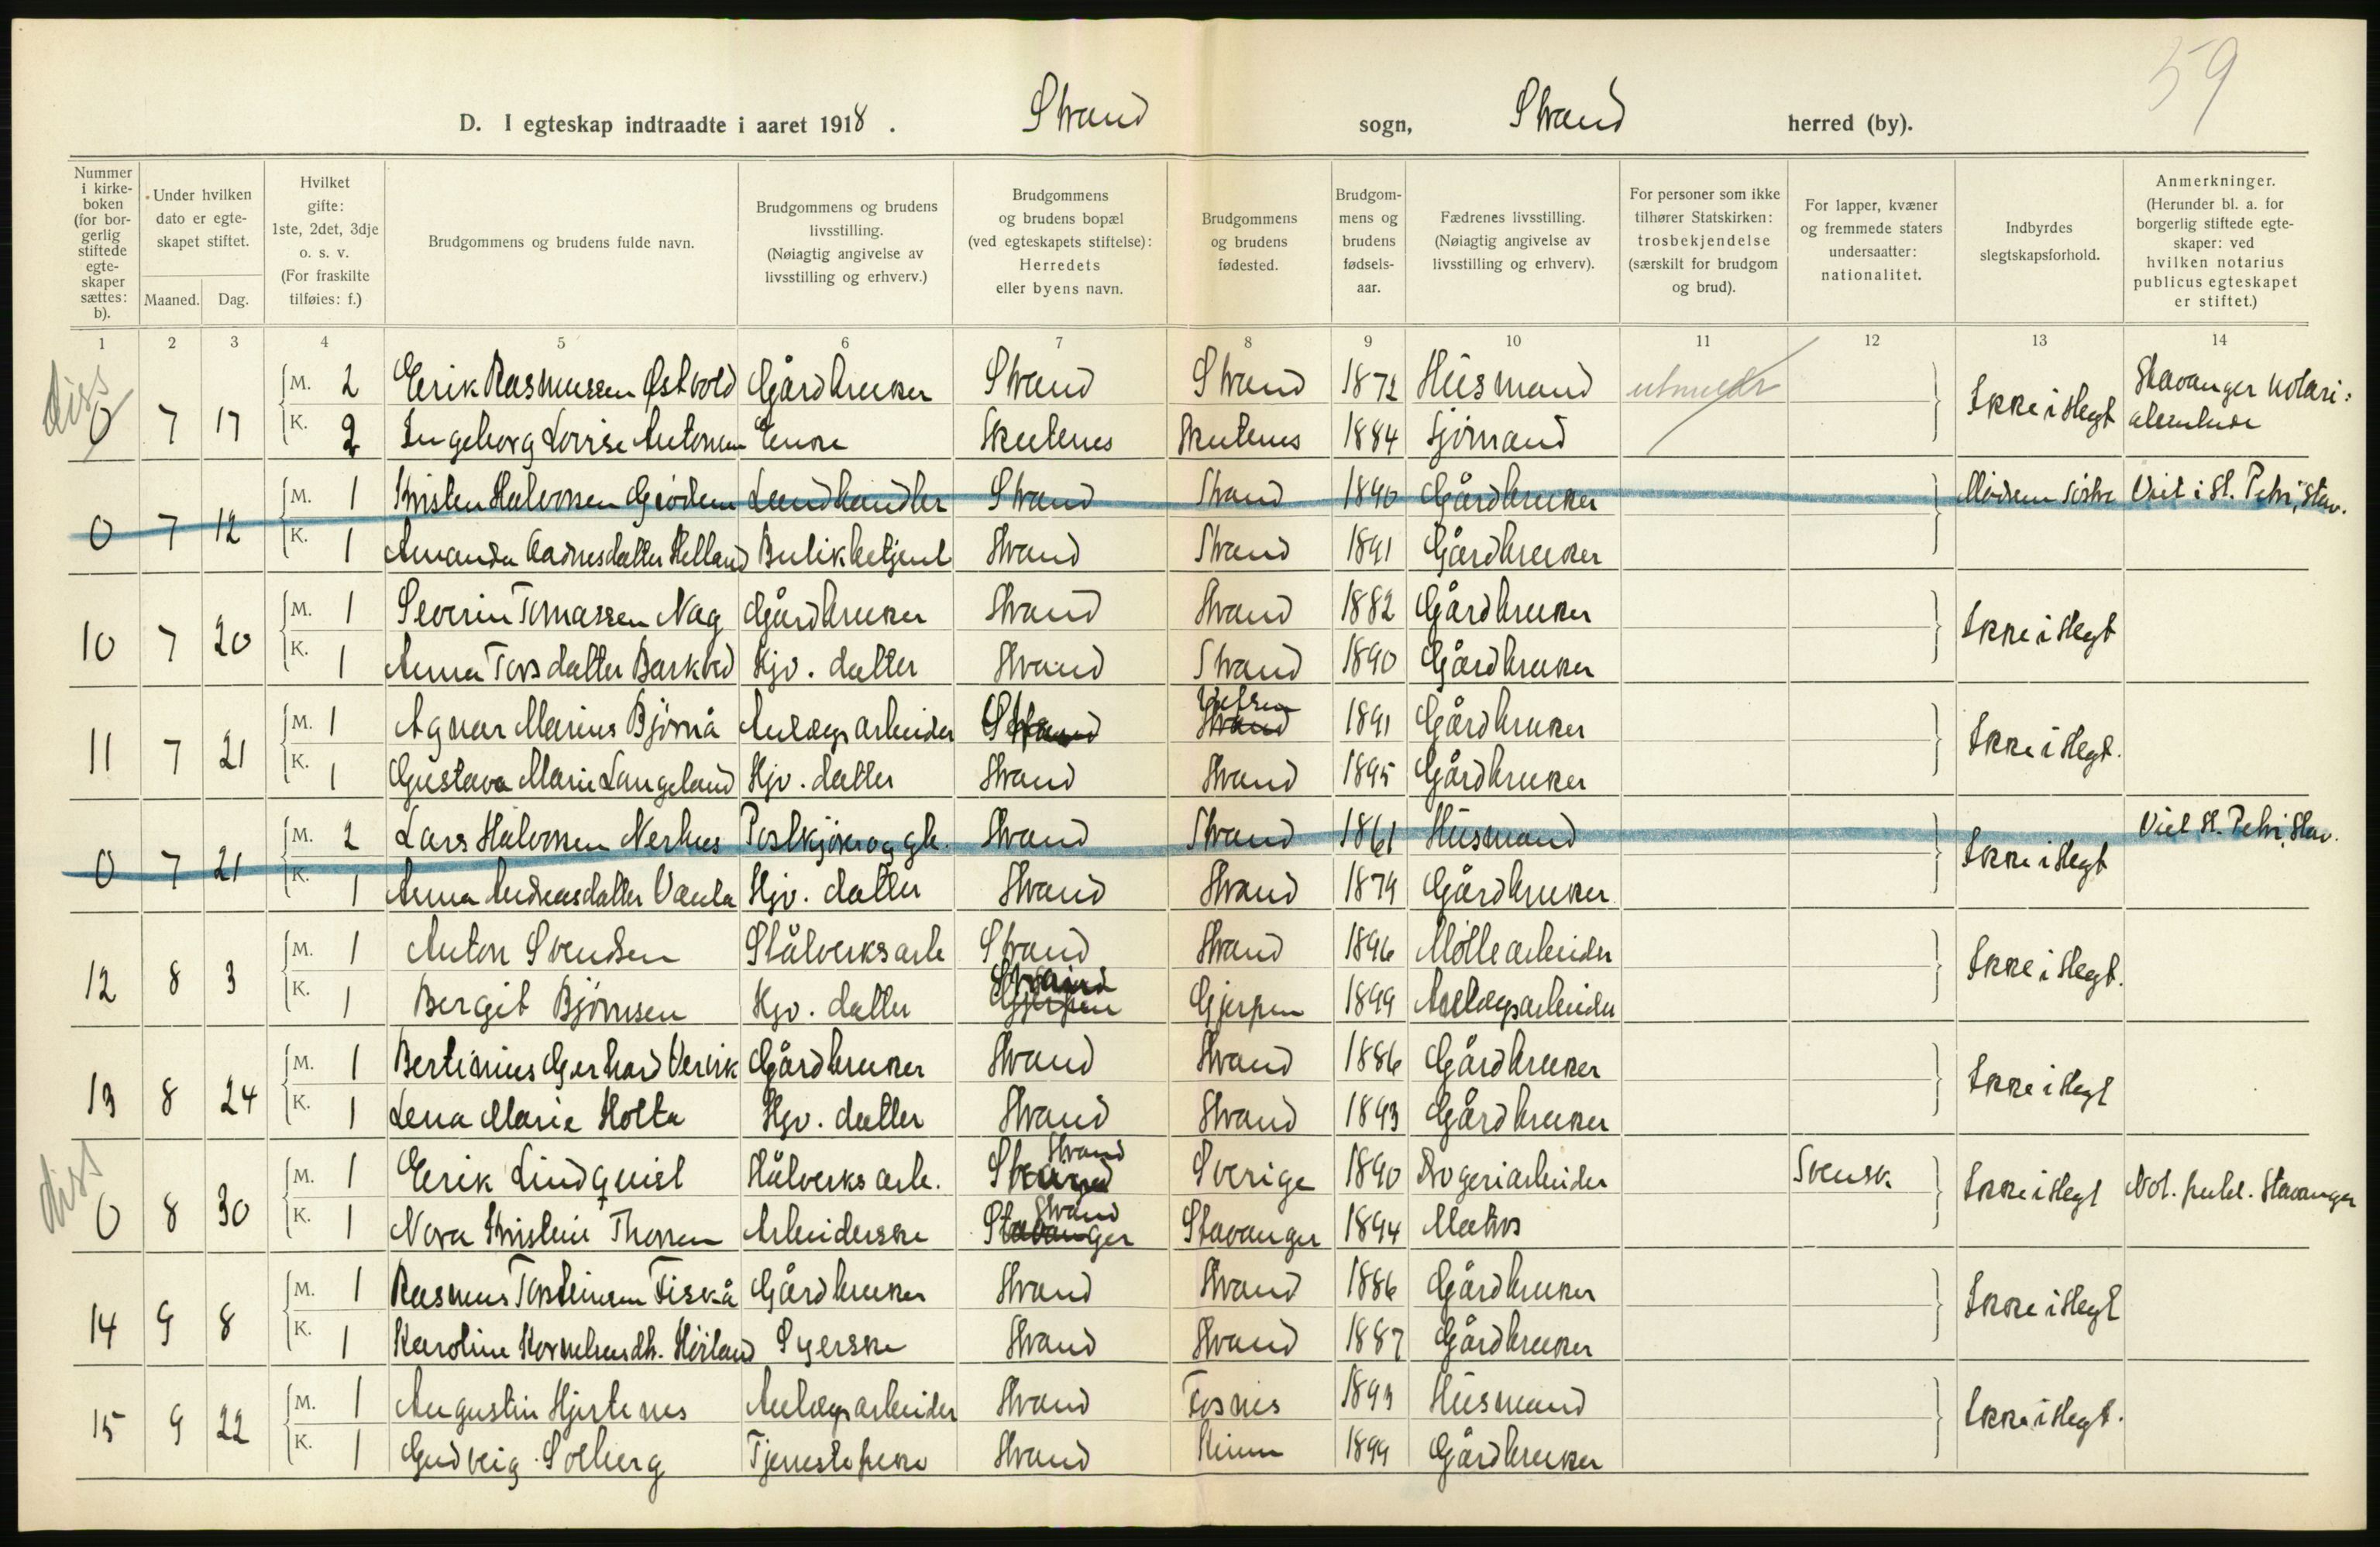 59
D. I egteskap indtraadte i aaret 1918. Strand sogn, Strand herred (by).
Nummer i kirkeboken (for borgerlig stiftede egteskaper sættes: b).
Under hvilken dato er egteskapet stiftet.
Maaned. Dag.
Hvilket gifte: 1ste, 2det, 3dje o. s. v. (For fraskilte tilføies: f.)
Brudgommens og brudens fulde navn.
Brudgommens og brudens livsstilling. (Nøiagtig angivelse av livsstilling og erhverv.)
Brudgommens og brudens bopæl (ved egteskapets stiftelse): Herredets eller byens navn.
Brudgommens og brudens fødested.
Brudgommens og brudens fødselsaar.
Fædrenes livsstilling. (Nøiagtig angivelse av livsstilling og erhverv).
For personer som ikke tilhører Statskirken: trosbekjendelse (særskilt for brudgom og brud).
For lapper, kvæner og fremmede staters undersaatter: nationalitet.
Indbyrdes slegtskapsforhold.
Anmerkninger. (Herunder bl. a. for borgerlig stiftede egteskaper: ved hvilken notarius publicus egteskapet er stiftet.)
1 2 3 4 5 6 7 8 9 10 11 12 13 14
diss
0 7 17 M. 2 Eerik Rasmussen Østvold Gårdbruker Strand Strand 1872 Husmand utmeldt Ikke i slegt Stavanger notari-
K. 2 Ingeborg Lovise Antonsen Enke Skutenes Skutenes 1884 Sjömand
0 7 12 M. 1 Kristen Halvorsen Grödem Landhandler Strand Strand 1890 Gårdbruker Viet i St. Petri, Stav.
K. 1 Amanda Aadnesdatter Helland Butikbetjent Strand Strand 1891 Gårdbruker
10 7 20 M. 1 Severin Tomassen Nag Gårdbruker Strand Strand 1882 Gårdbruker Ikke i slegt
K. 1 Anna Torsdatter Barkved Hjv. datter Strand Strand 1890 Gårdbruker
11 7 21 M. 1 Agnar Marius Björnå Anlægsarbeider Strand Vefsen Strand 1891 Gårdbruker Ikke i slegt.
K. 1 Gustava Marie Langeland Hjv. datter Strand Strand 1895 Gårdbruker
0 7 21 M. 2 Lars Halvorsen Nerhus Postkjører og gb. Strand Strand 1861 Husmand Ikke i slegt Viet St. Petri, Stav.
K. 1 Anna Andreasdatter Vaula Hjv. datter Strand Strand 1879 Gårdbruker
12 8 3 M. 1 Anton Svendsen Stålverksarb Strand Strand 1896 Möllearbeider Ikke i slegt.
K. 1 Bergit Björnsen Hjv. datter Strand Gjerpen Gjerpen 1899 Anlægsarbeider
13 8 24 M. 1 Bertinius Gerhard Vervik Gårdbruker Strand Strand 1886 Gårdbruker Ikke i slegt
K. 1 Lena Marie Holta Hjv. datter Strand Strand 1893 Gårdbruker
diss
0 8 30 M. 1 Eerik Lindquist Stålverksarb. Strand Strand Sverige 1890 Svensk. Ikke i slegt Not. publ. Stavanger
K. 1 Nora Kristine Thorsen Arbeiderske Strand Stavanger Stavanger 1894 Matros
14 9 8 M. 1 Rasmus Torsteinsen Fiskå Gårdbruker Strand Strand 1886 Gårdbruker Ikke i slegt
K. 1 Karoline Korneliusdtr. Höiland Syerske Strand Strand 1887 Gårdbruker
15 9 22 M. 1 Augustin Hjertenes Anlægsarbeider Strand Fosnes 1893 Husmand Ikke i slegt.
K. 1 Gudveig Solberg Tjenestepike Strand Kinn 1899 Gårdbruker